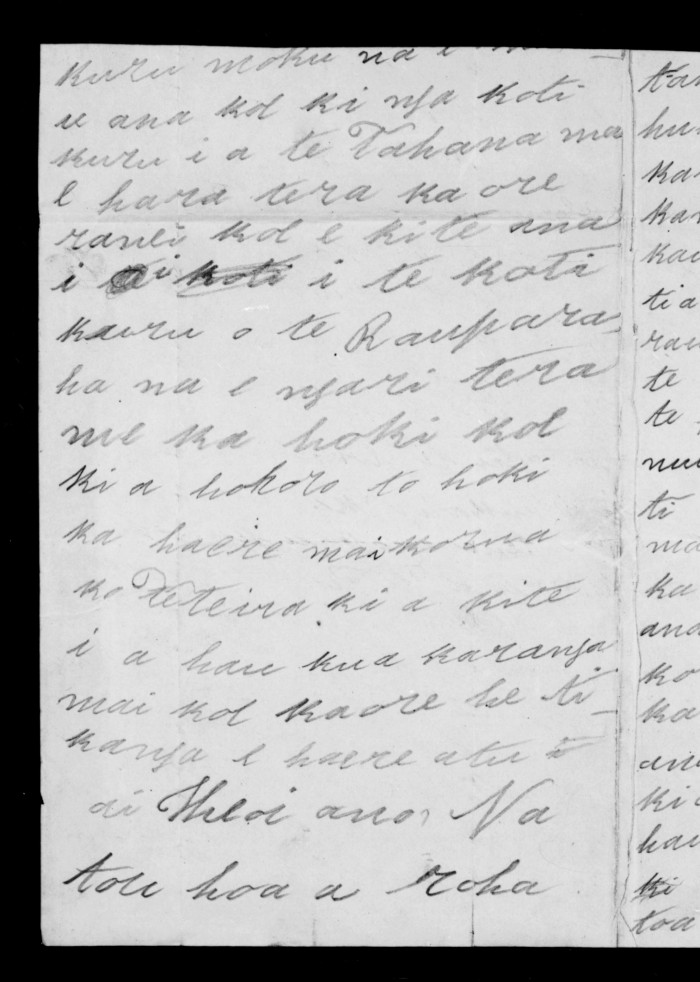 kuru moku na e
u ana koe ki nga koti
kuru i a te Tahana ma
e hara tera ka ore
ranei koe e kite ana
i i koti i te koti
kauru o te Raupara
ha na e ngari tera
me ka hoki koe
ki a hohoro to hoki
ka haere mai korua
ko Teteira ki a kite
i a hau kua karanga
mai koe kaore he ti
kanga e haere atu
ai Heoi ano, Na
tou hoa a roha
hu
ti a
te
te
ti
ka
ana
ko
ka
ki
toa